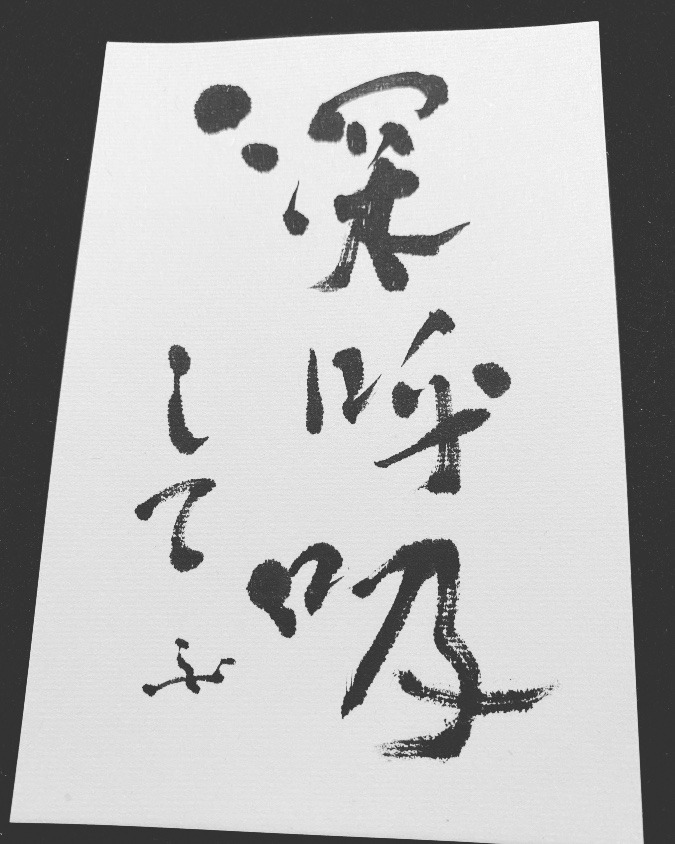 深呼吸
してふ